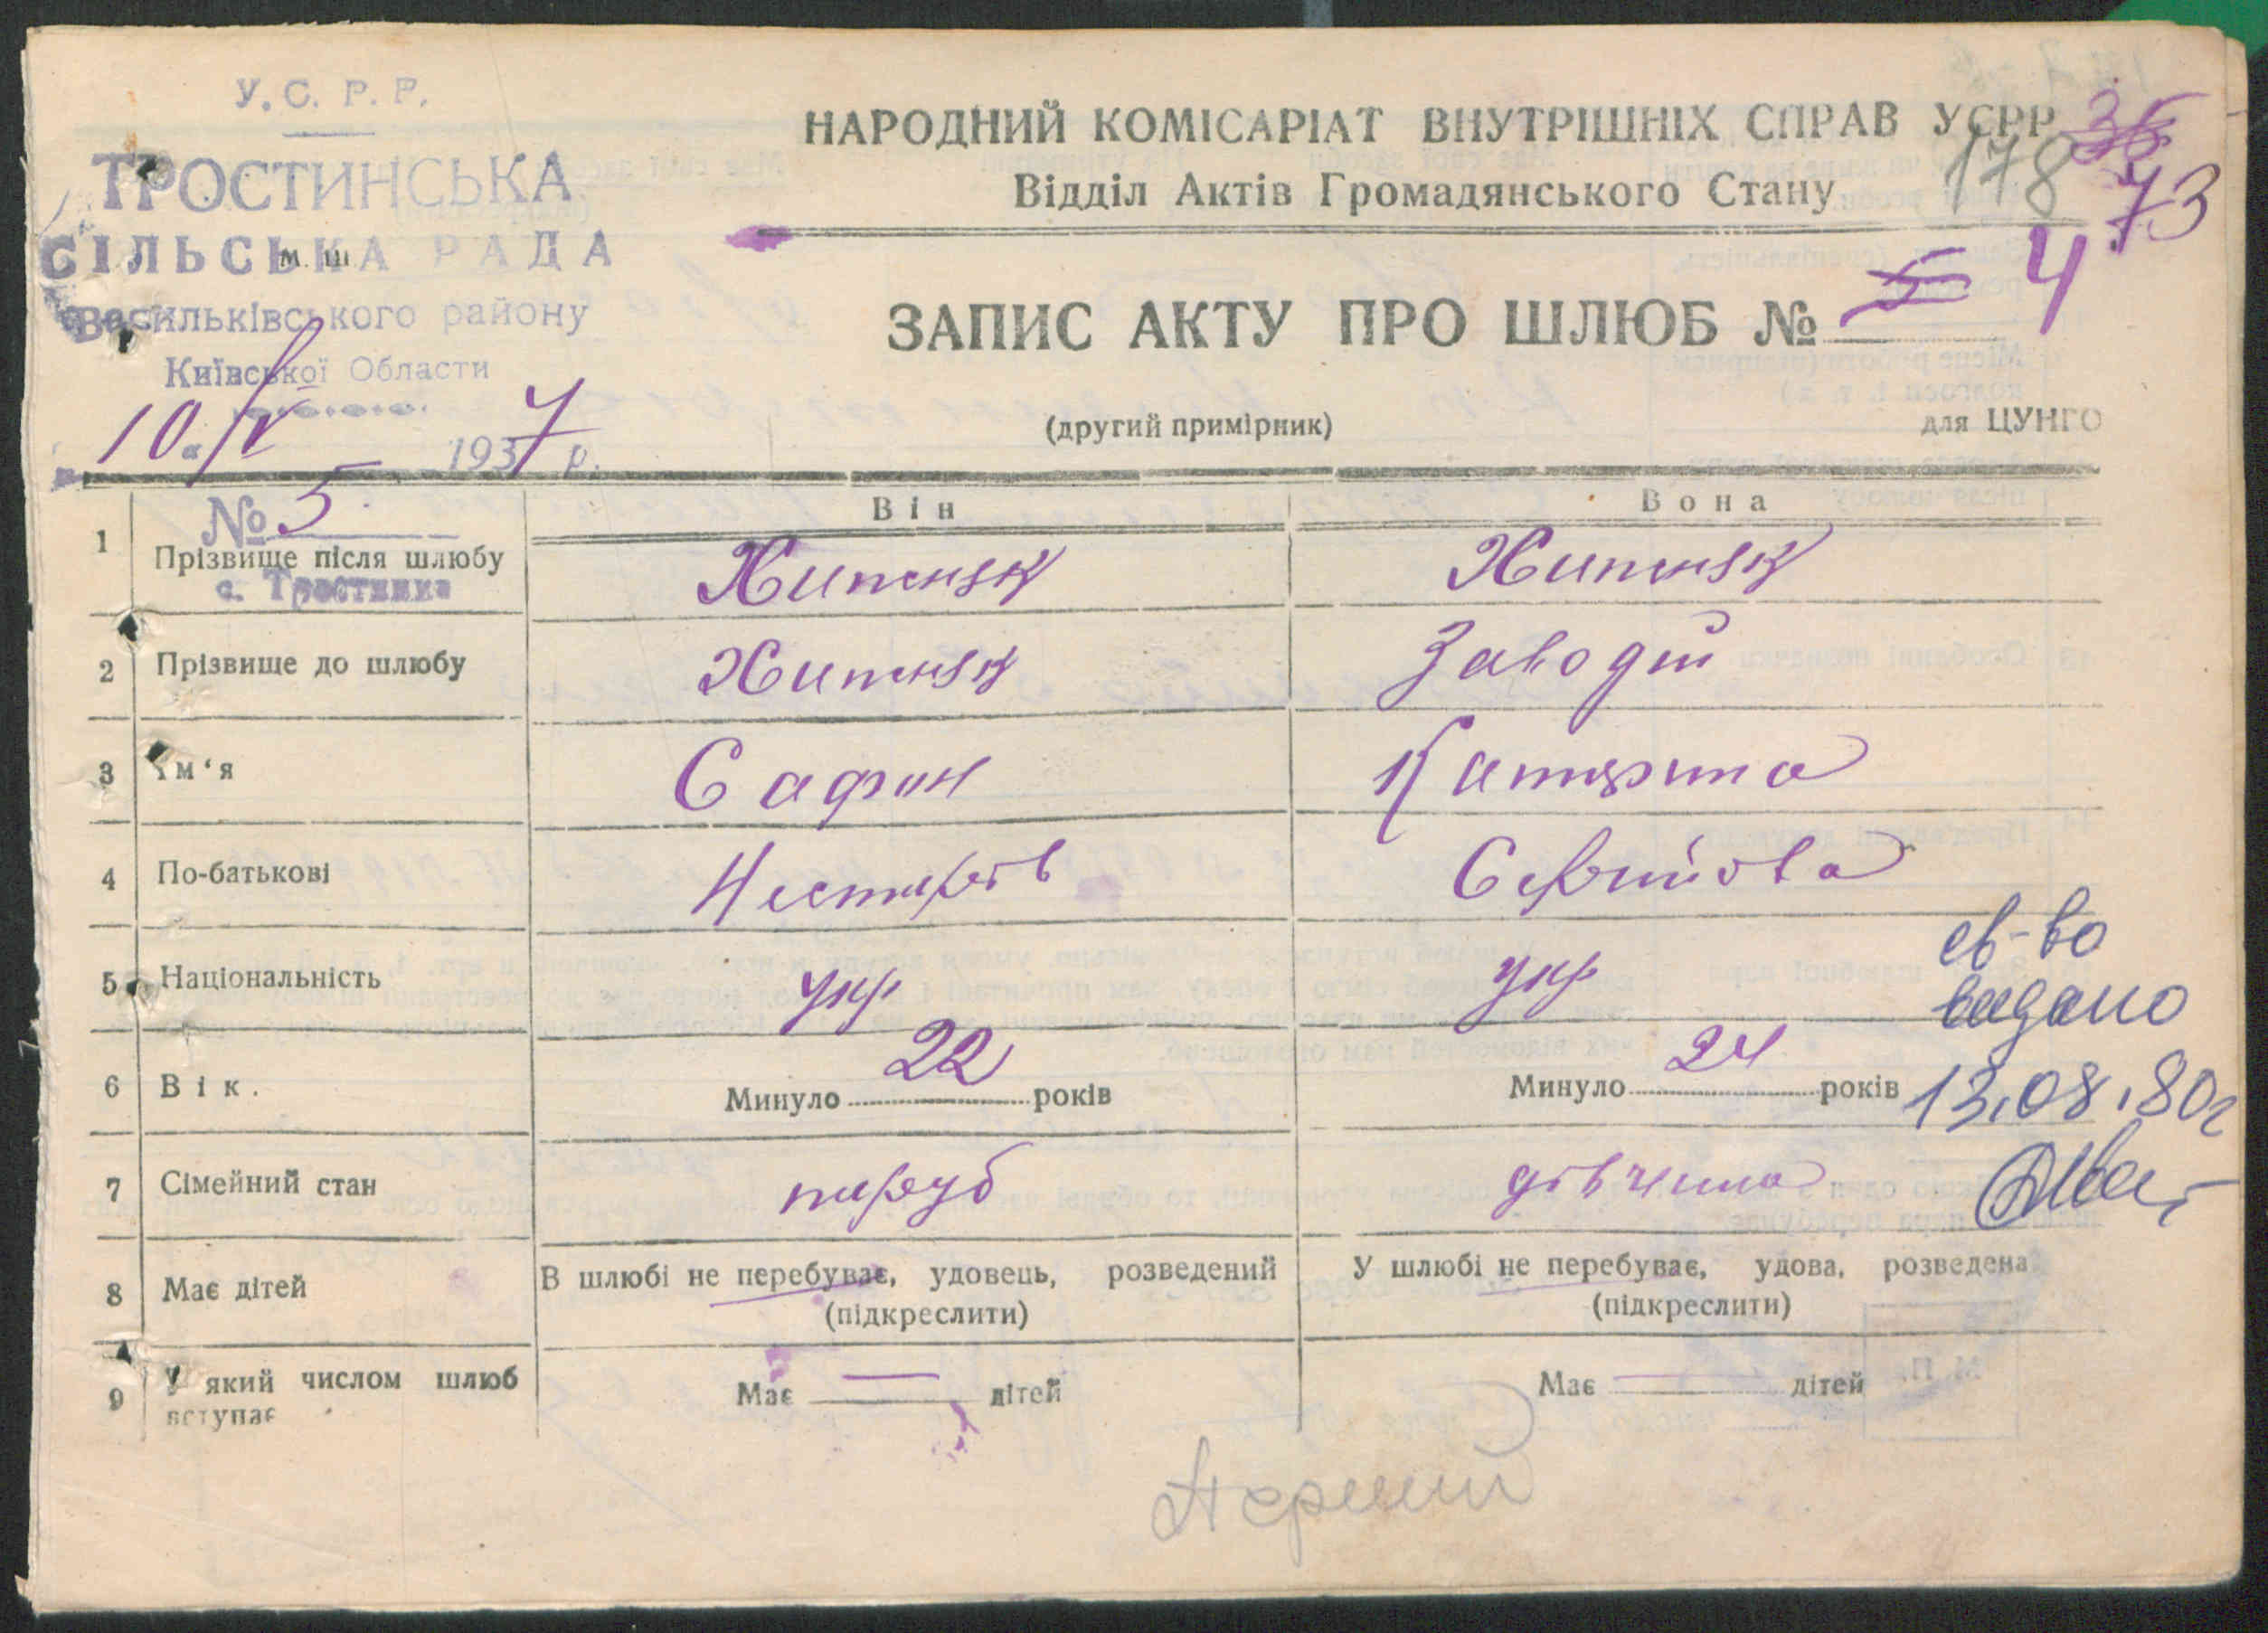 У.С.Р.Р.
ТРОСТИНСЬКА
СІЛЬСЬКА РАДА
м. ш.
Васильківського району
Київської Області
10/V 1937 р.
№ 5
с. Тростинка
НАРОДНИЙ КОМІСАРІАТ ВНУТРІШНІХ СПРАВ УСРР
Відділ Актів Громадянського Стану
36
178
73
ЗАПИС АКТУ ПРО ШЛЮБ № 5 4
(другий примірник) для ЦУНГО
Він Вона
1 Прізвище після шлюбу Житняк Житняк
2 Прізвище до шлюбу Житняк Заводій
3 Ім‘я Сафон Катярина
4 По-батькові Нестирів Сергійова
5 Національність укр укр
6 Вік. Минуло 22 років Минуло 24 років
7 Сімейний стан паруб дівчина
8 Має дітей В шлюбі не перебуває, удовець, розведений У шлюбі не перебуває, удова, розведена
(підкреслити) (підкреслити)
9 У який числом шлюб вступає Має — дітей Має — дітей
св-во
видано
13.08.80г
Перший
М. П.